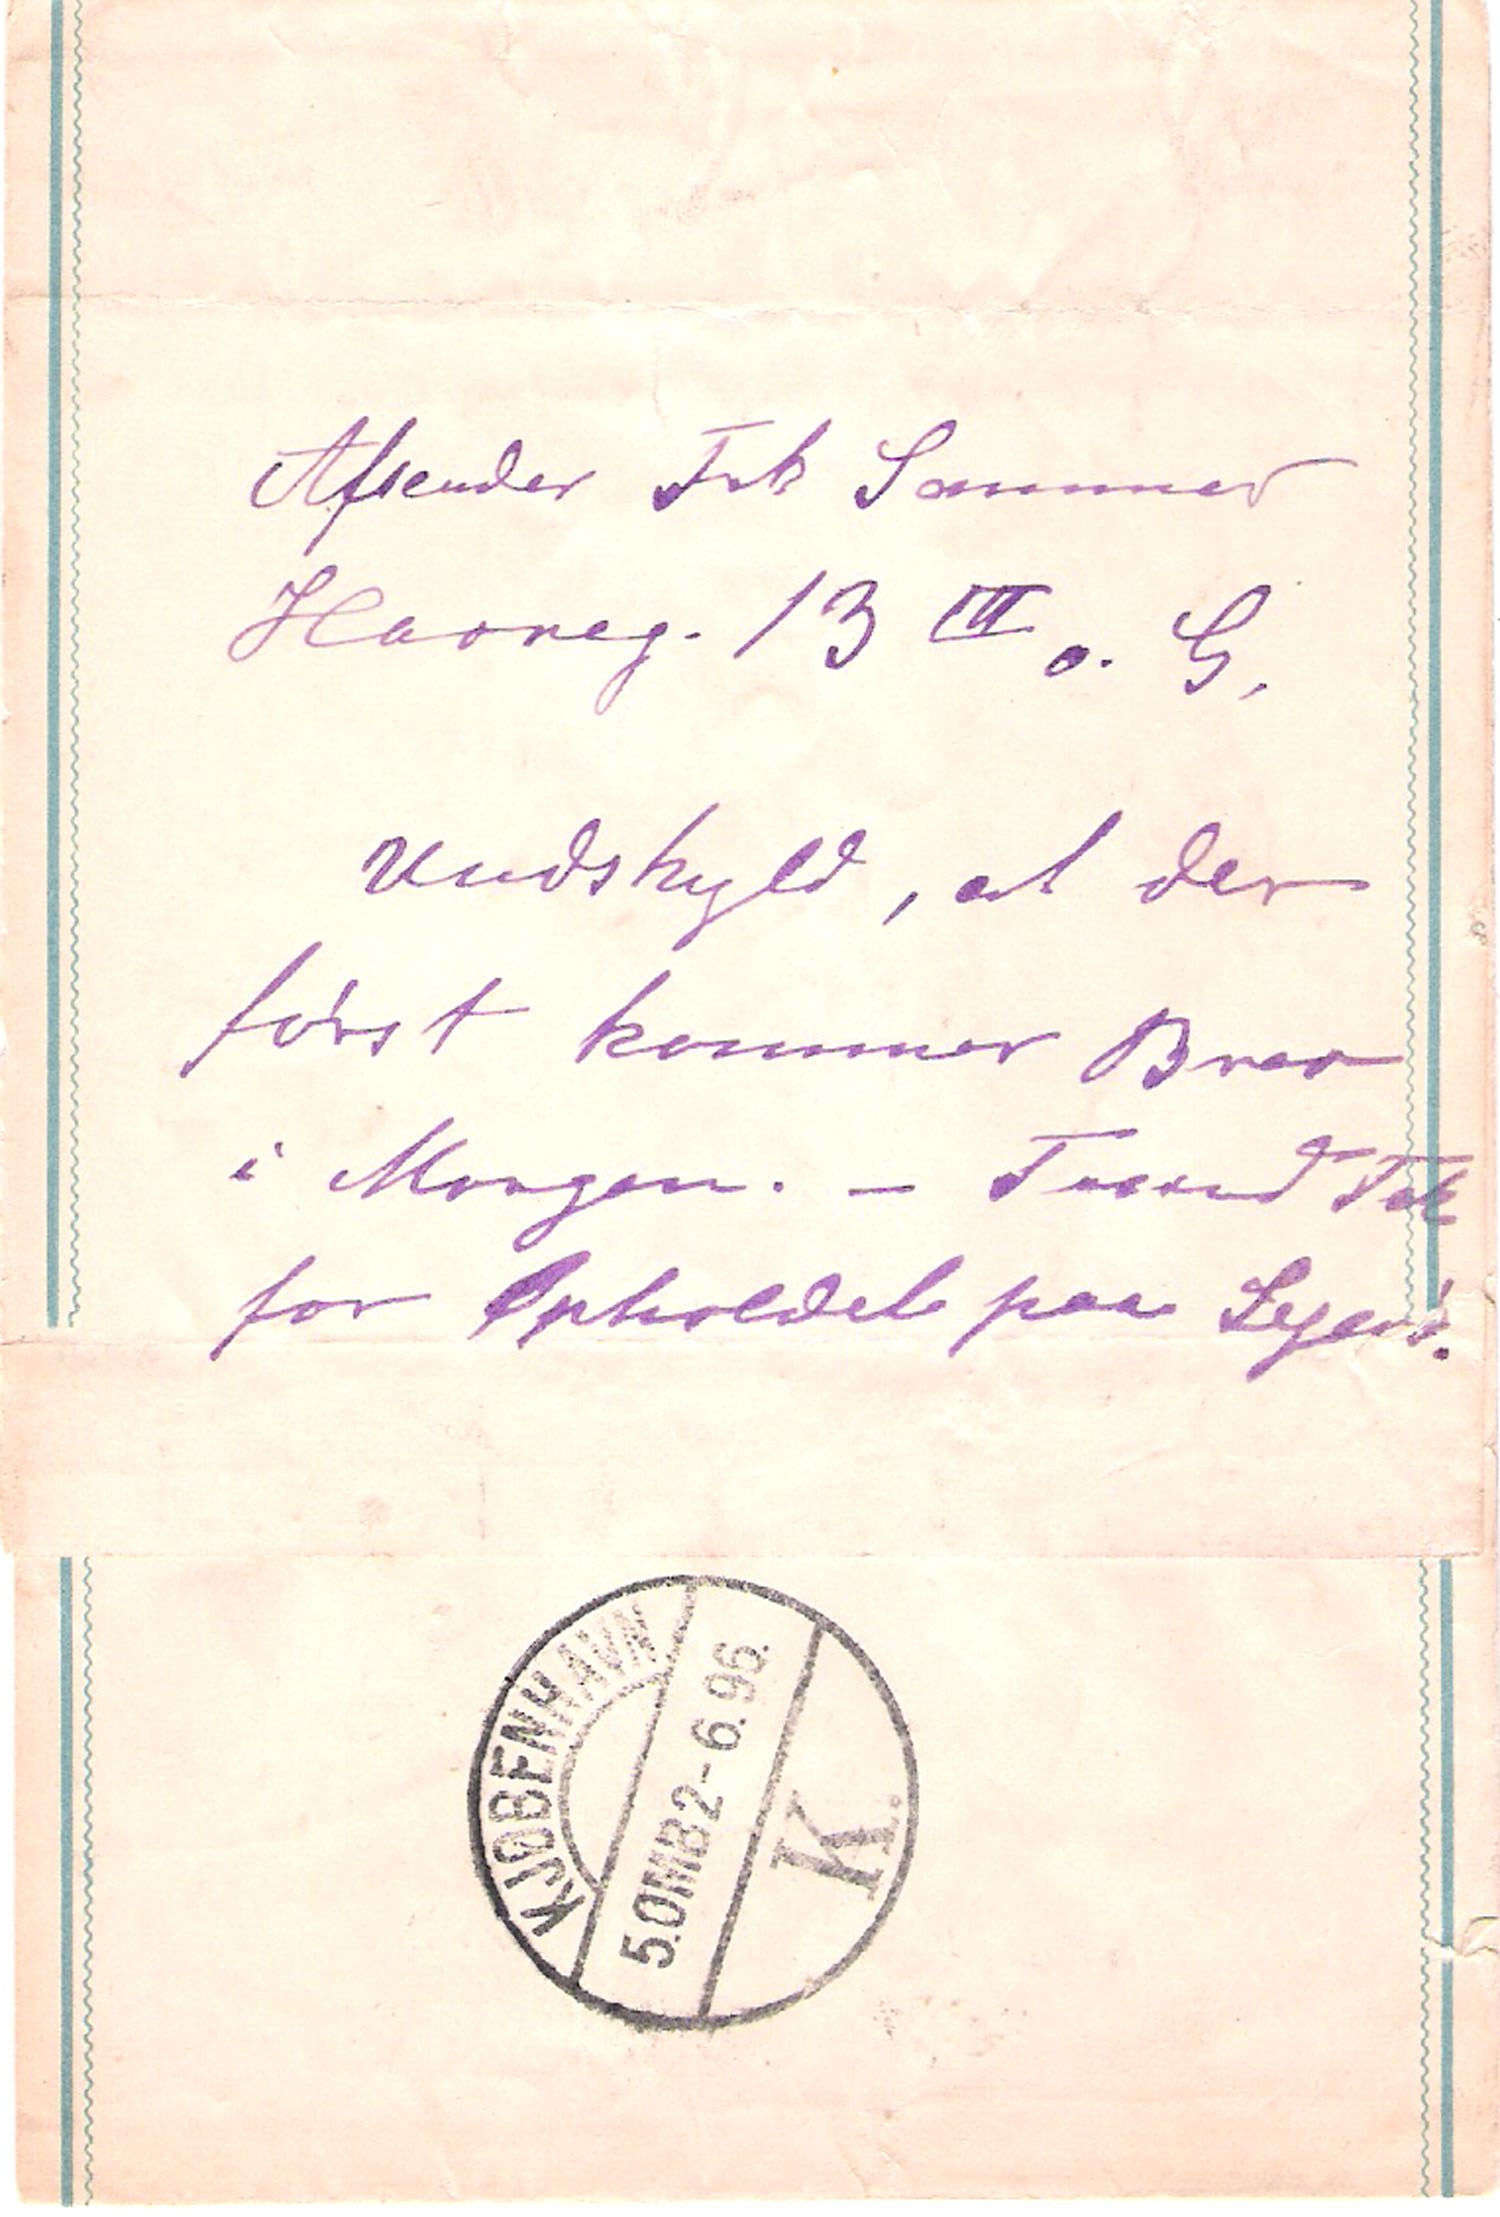 Afsender Frk Sommer
Havneg. 13 III o. G.
Undskyld, at der
først kommer Brev
i Morgen. – Tusind Tak
for Opholdet paa Lejet.
KJØBENHAVN
5.OMB 2-6.96.
K.